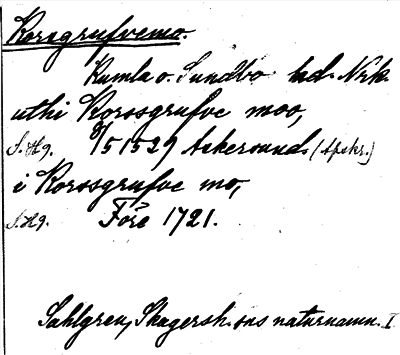 Korsgrufvemo.
Kumla o. Sundbo hd. Nrk.
uthi Korssgrufve moo,
S. Hg. 8/5 1529 Askersund (Apskr.)
i Korssgrufve mo,
S. Hg. Före 1721.
Sahlgren, Skagersh:sns naturnamn. I